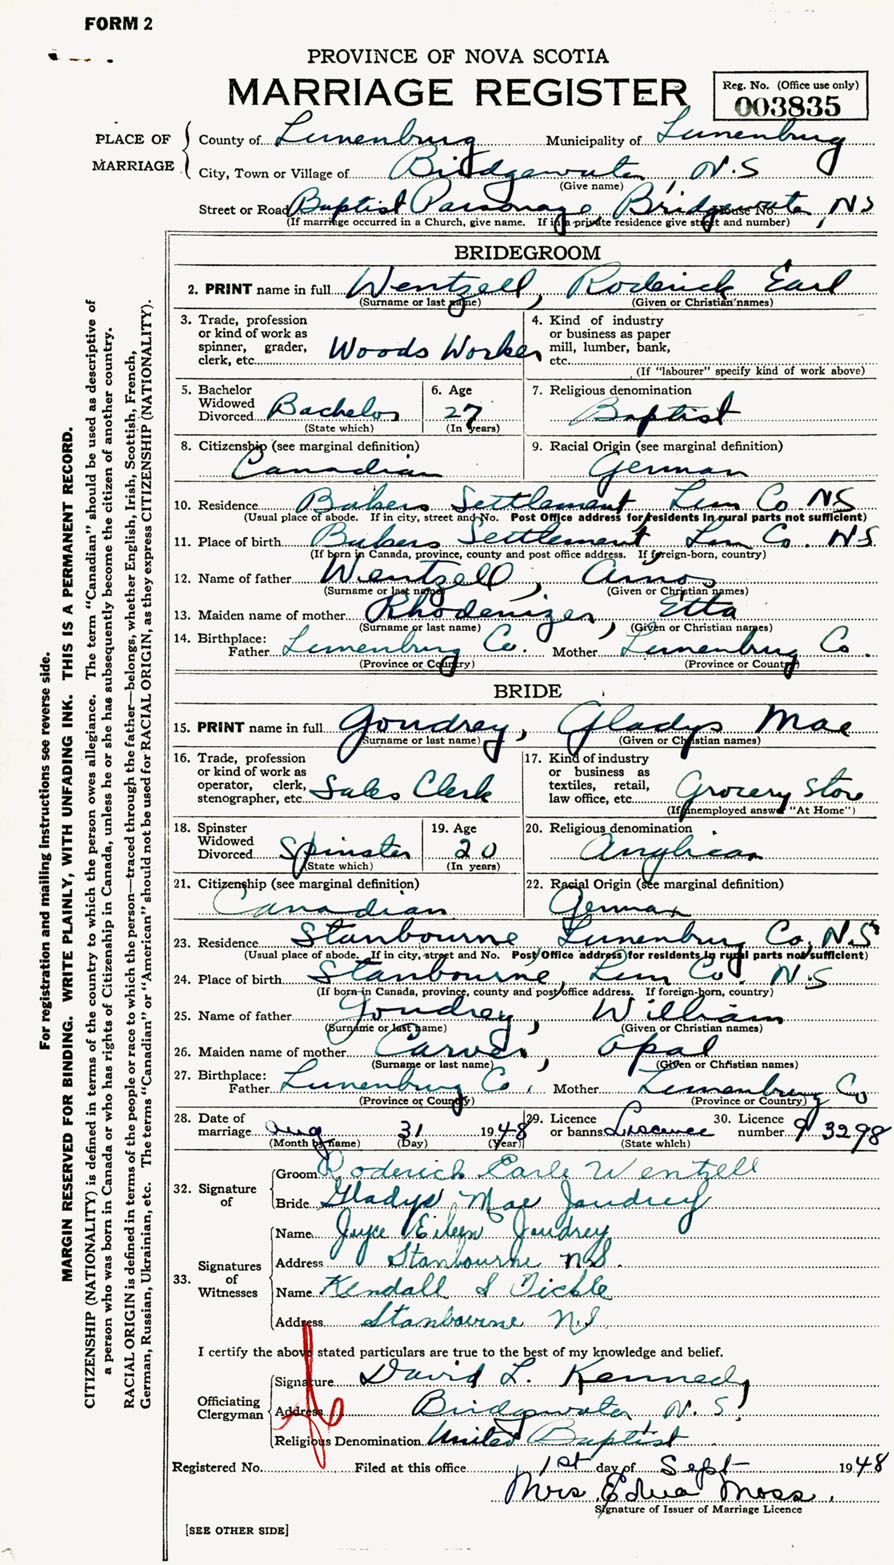 FORM 2
PROVINCE OF NOVA SCOTIA
MARRIAGE REGISTER
Reg. No. (Office use only)
003835
PLACE OF MARRIAGE
County of Lunenburg Municipality of Lunenburg
City, Town or Village of Bridgewater, N.S
(Give name)
Street or Road Baptist Parsonage Bridgewater, NS
(If marriage occurred in a Church, give name. If in a private residence give street and number)
BRIDEGROOM
2. PRINT name in full Wentzell, Roderick Earl
(Surname or last name) (Given or Christian names)
3. Trade, profession or kind of work as spinner, grader, clerk, etc. Woods Worker
4. Kind of industry or business as paper mill, lumber, bank, etc.
(If "labourer" specify kind of work above)
5. Bachelor Widowed Divorced Bachelor
(State which)
6. Age 27
(In years)
7. Religious denomination Baptist
8. Citizenship (see marginal definition) Canadian
9. Racial Origin (see marginal definition) German
10. Residence Bakers Settlement Lun Co NS
(Usual place of abode. If in city, street and No. Post Office address for residents in rural parts not sufficient)
11. Place of birth Bakers Settlement Lun Co. NS
(If born in Canada, province, county and post office address. If foreign-born, country)
12. Name of father Wentzell, Amos
(Surname or last name) (Given or Christian names)
13. Maiden name of mother Rhodenizer, Etta
(Surname or last name) (Given or Christian names)
14. Birthplace: Father Lunenburg Co. Mother Lunenburg Co.
(Province or Country) (Province or Country)
BRIDE
15. PRINT name in full Joudrey, Gladys Mae
(Surname or last name) (Given or Christian names)
16. Trade, profession or kind of work as operator, clerk, stenographer, etc. Sales Clerk
17. Kind of industry or business as textiles, retail, law office, etc. Grocery Store
(If unemployed answer "At Home")
18. Spinster Widowed Divorced Spinster
(State which)
19. Age 20
(In years)
20. Religious denomination Anglican
21. Citizenship (see marginal definition) Canadian
22. Racial Origin (see marginal definition) German
23. Residence Stanbourne Lunenburg Co, N.S
(Usual place of abode. If in city, street and No. Post Office address for residents in rural parts not sufficient)
24. Place of birth Stanbourne, Lun Co. N.S
(If born in Canada, province, county and post office address. If foreign-born, country)
25. Name of father Joudrey, William
(Surname or last name) (Given or Christian names)
26. Maiden name of mother Carver, Opal
(Surname or last name) (Given or Christian names)
27. Birthplace: Father Lunenburg Co, Mother Lunenburg Co
(Province or Country) (Province or Country)
28. Date of marriage Aug 31 1948
(Month by name) (Day) (Year)
29. Licence or banns Liscence
(State which)
30. Licence number 93298
32. Signature of
Groom Roderick Earle Wentzell
Bride Gladys Mae Joudrey
33. Signatures of Witnesses
Name Joyce Eileen Joudrey
Address Stanbourne N.S.
Name Kendall S
Address Stanbourne N.S
I certify the above stated particulars are true to the best of my knowledge and belief.
Officiating Clergyman
Signature David L. Kennedy
Address Bridgewater N.S,
Religious Denomination United Baptist
Registered No. Filed at this office 1st day of Sept 1948
Mrs. Edna Moss.
Signature of Issuer of Marriage Licence
[SEE OTHER SIDE]
For registration and mailing instructions see reverse side.
MARGIN RESERVED FOR BINDING. WRITE PLAINLY, WITH UNFADING INK. THIS IS A PERMANENT RECORD.
CITIZENSHIP (NATIONALITY) is defined in terms of the country to which the person owes allegiance. The term "Canadian" should be used as descriptive of
a person who was born in Canada or who has rights of Citizenship in Canada, unless he or she has subsequently become the citizen of another country.
RACIAL ORIGIN is defined in terms of the people or race to which the person—traced through the father—belongs, whether English, Irish, Scottish, French,
German, Russian, Ukrainian, etc. The terms "Canadian" or "American" should not be used for RACIAL ORIGIN, as they express CITIZENSHIP (NATIONALITY).